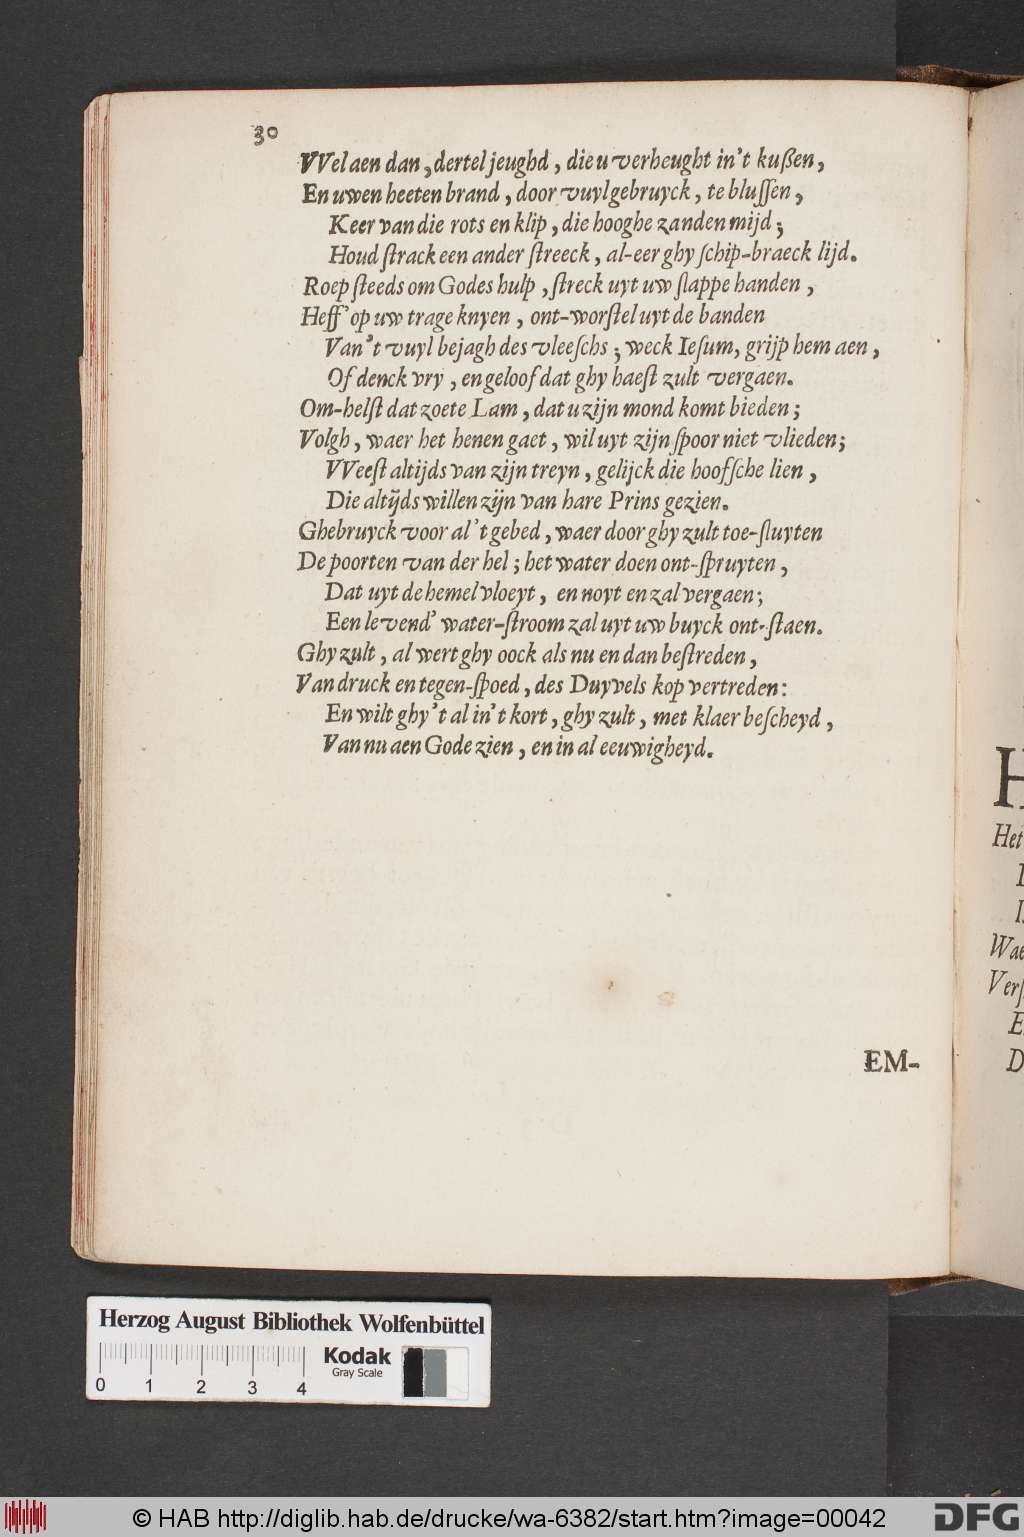 30
VVel aen dan, dertel jeughd, die u verheught in't kußen,
En uwen heeten brand, door vuyl gebruyck, te bluſſen,
Keer van die rots en klip, die hooghe zanden mijd;
Houd ſtrack een ander ſtreeck, al-eer ghy ſchip-braeck lijd.
Roep ſteeds om Godes hulp, ſtreck uyt uw ſlappe handen,
Heff' op uw trage knyen, ont-worſtel uyt de banden
Van't vuyl bejagh des vleeſchs; weck Ieſum, grijp hem aen,
Of denck vry, en geloof dat ghy haeſt zult vergaen.
Om-helſt dat zoete Lam, dat u zijn mond komt bieden;
Volgh, waer het henen gaet, wil uyt zijn ſpoor niet vlieden;
VVeeſt altijds van zijn treyn, gelijck die hoofſche lien,
Die altijds willen zijn van hare Prins gezien.
Ghebruyck voor al't gebed, waer door ghy zult toe-ſluyten
De poorten van der hel; het water doen ont-ſpruyten,
Dat uyt de hemel vloeyt, en noyt en zal vergaen;
Een levend' water-ſtroom zal uyt uw buyck ont-ſtaen.
Ghy zult, al wert ghy oock als nu en dan beſtreden,
Van druck en tegen-ſpoed, des Duyvels kop vertreden:
En wilt ghy't al in't kort, ghy zult, met klaer beſcheyd,
Van nu aen Gode zien, en in al eeuwigheyd.
EM-
H
Het
I
Wae
Verſ
E
D
Herzog August Bibliothek Wolfenbüttel
Kodak
Gray Scale
0 1 2 3 4
© HAB http://diglib.hab.de/drucke/wa-6382/start.htm?image=00042
DFG